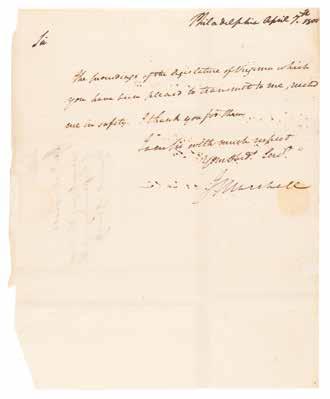 Philadelphia April 7.th 1800
Sir
The proceedings of the legislature of Virginia which
you have been pleased to transmit to me, reachd
me in safety. I thank you for them
I am Sir with much respect
Your Obedt. Servt.
J Marshall